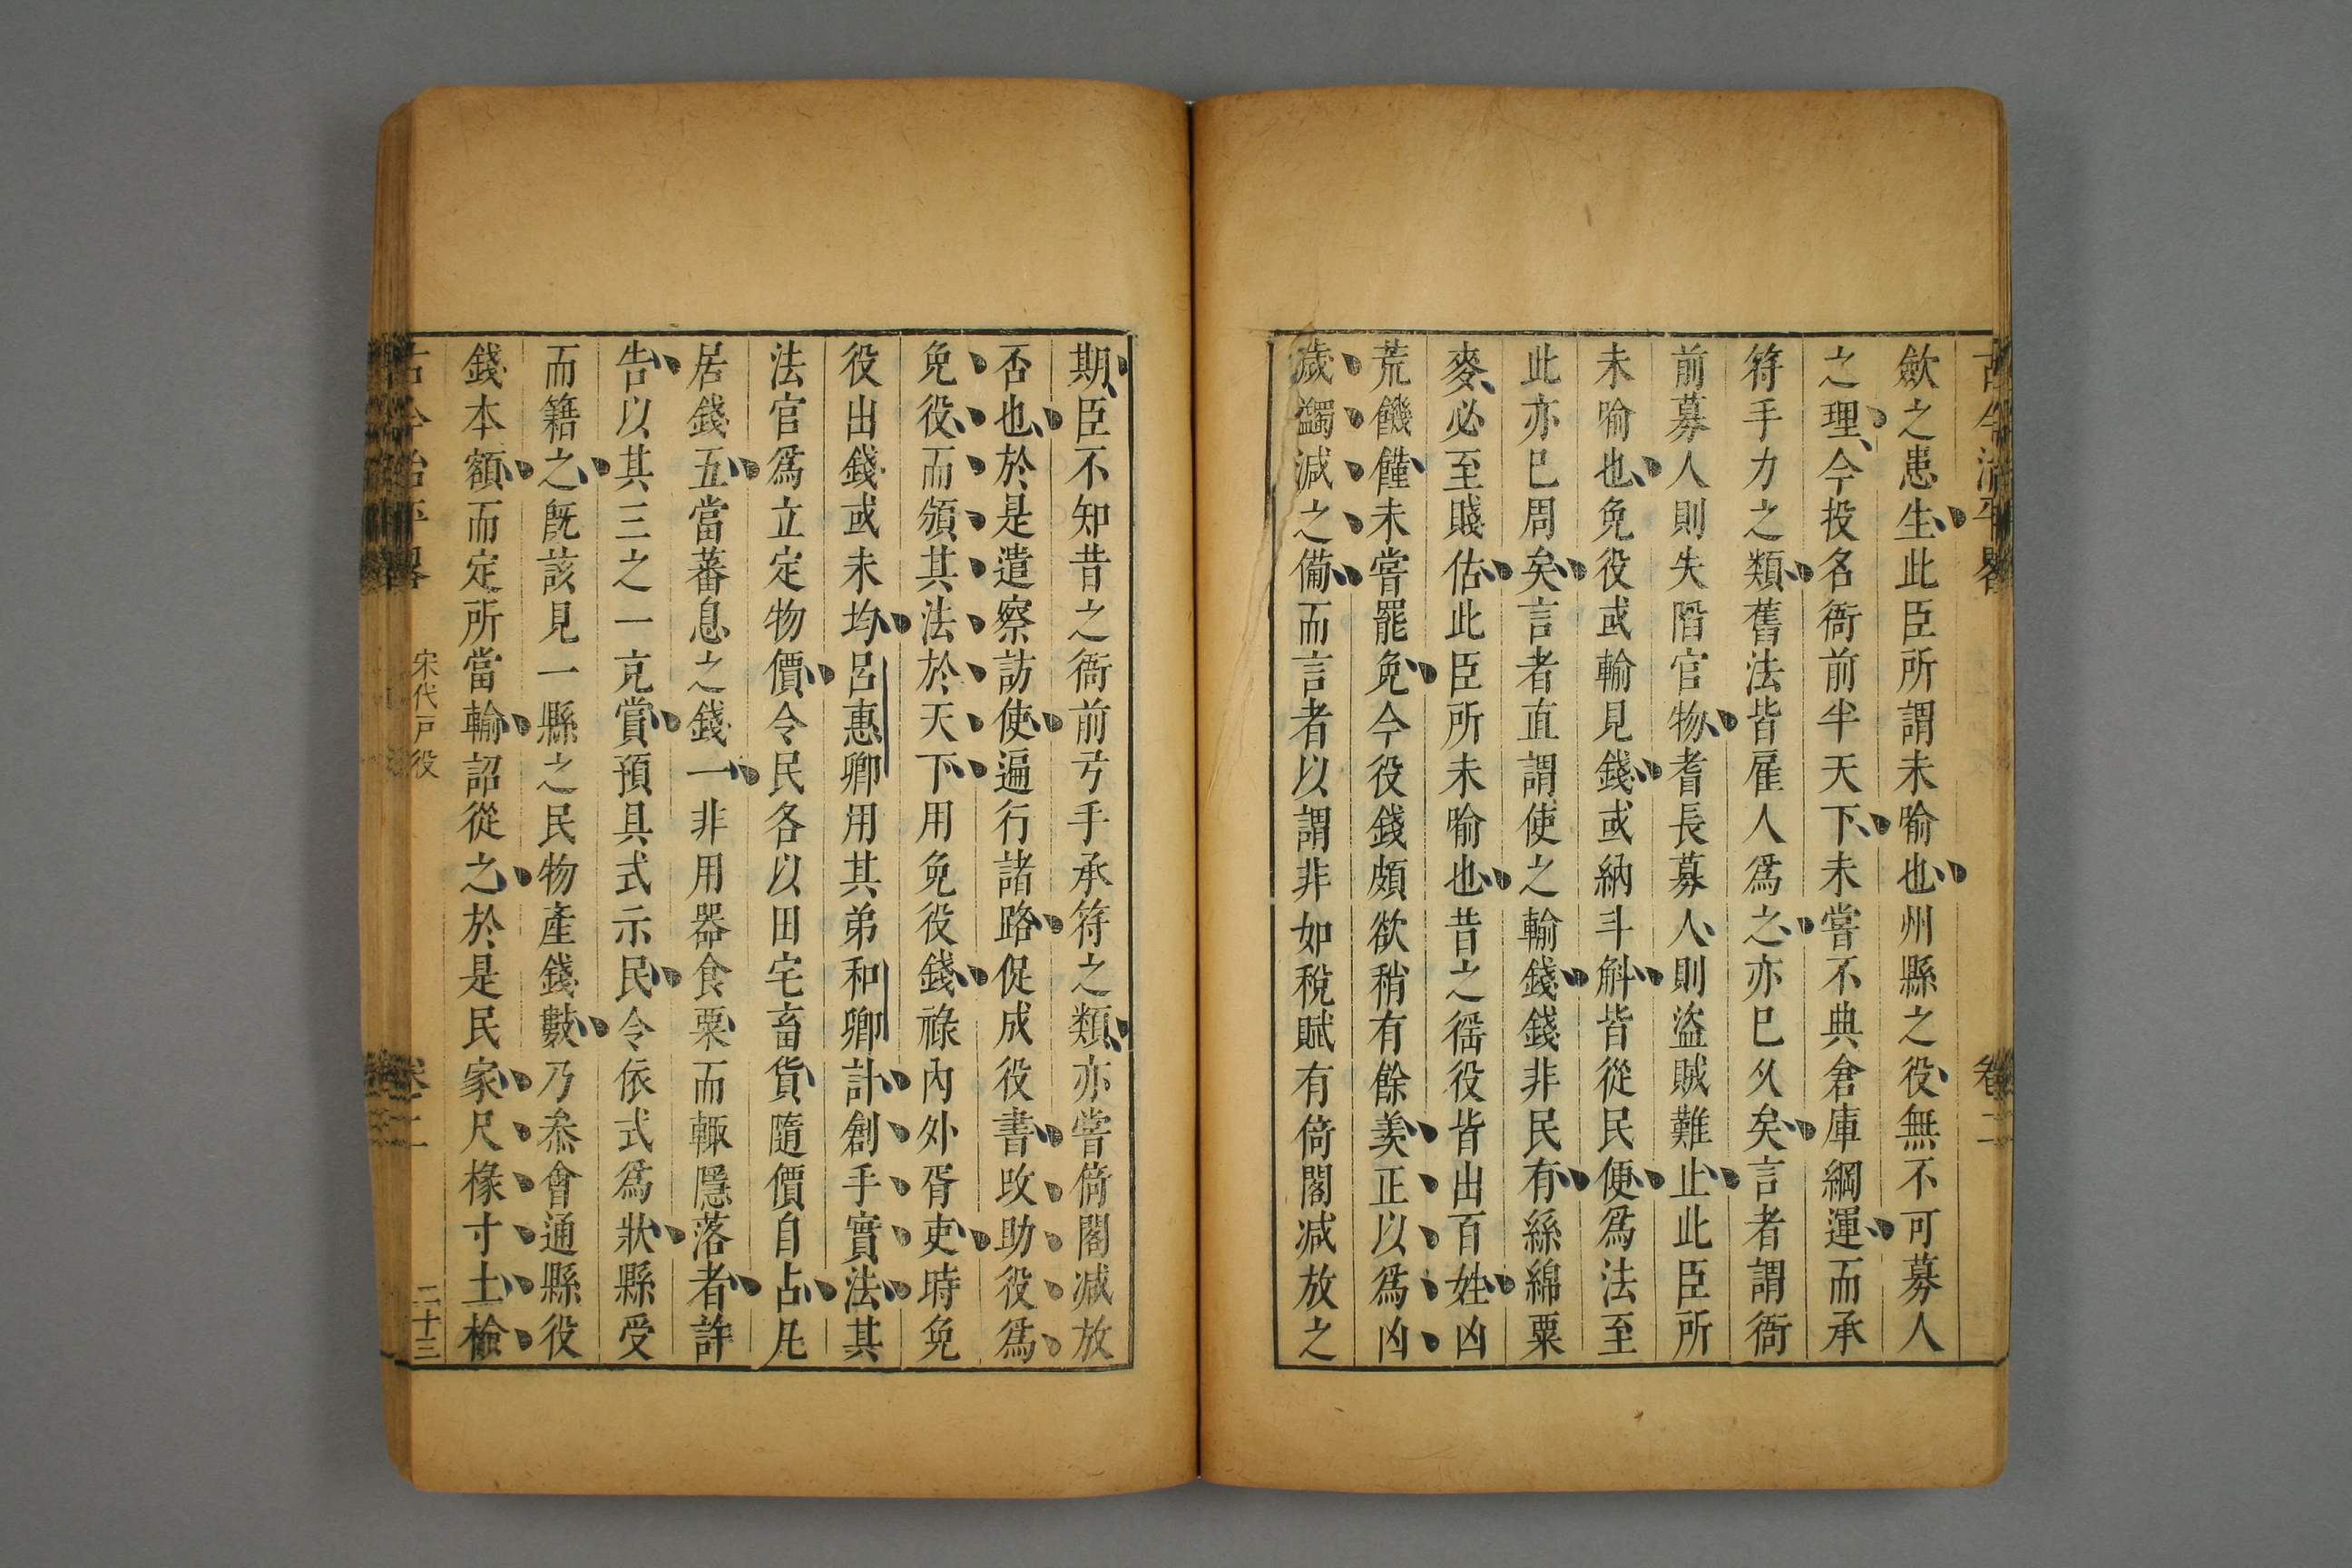 古今治平畧 卷二
歛之患生此臣所謂未喻也州縣之役無不可募人
之理今投名衙前半天下未嘗不典倉庫綱運而承
符手力之類舊法皆雇人爲之亦已久矣言者謂衙
前募人則失陷官物耆長募人則盜賊難止此臣所
未喻也免役或輸見錢或納斗斛皆從民便爲法至
此亦已周矣言者直謂使之輸錢錢非民有絲綿粟
麥必至賤估此臣所未喻也昔之徭役皆出百姓凶
荒饑饉未嘗罷免今役錢頗欲稍有餘羨正以爲凶
歲蠲減之備而言者以謂非如稅賦有倚閣减放之
期臣不知昔之衙前弓手承符之類亦嘗倚閣减放
否也於是遣察訪使遍行諸路促成役書改助役爲
免役而頒其法於天下用免役錢祿內外胥吏時免
役出錢或未均呂惠卿用其弟和卿計創手實法其
法官爲立定物價令民各以田宅畜貨隨價自占凡
居錢五當蕃息之錢一非用器食粟而輙隱落者許
告以其三之一充賞預具式示民令依式爲狀縣受
而籍之旣該見一縣之民物產錢數乃叅會通縣役
錢本額而定所當輸詔從之於是民家尺椽寸土檢
古今治平畧 宋代戸役 卷二 二十三